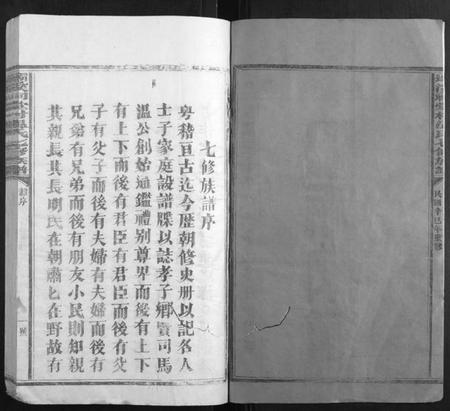 七修族譜序
粤稽亘古迄今歷朝修史册以記名人
士子家庭設譜牒以誌孝子鄉賢司馬
溫公創始通鑑禮别尊卑而後有上下
有上下而後有君臣有君臣而後有父
子有父子而後有夫婦有夫婦而後有
兄弟有兄弟而後有朋友小民則知親
其親長其長明氏在朝肅匕在野故有
序
民國辛巳年